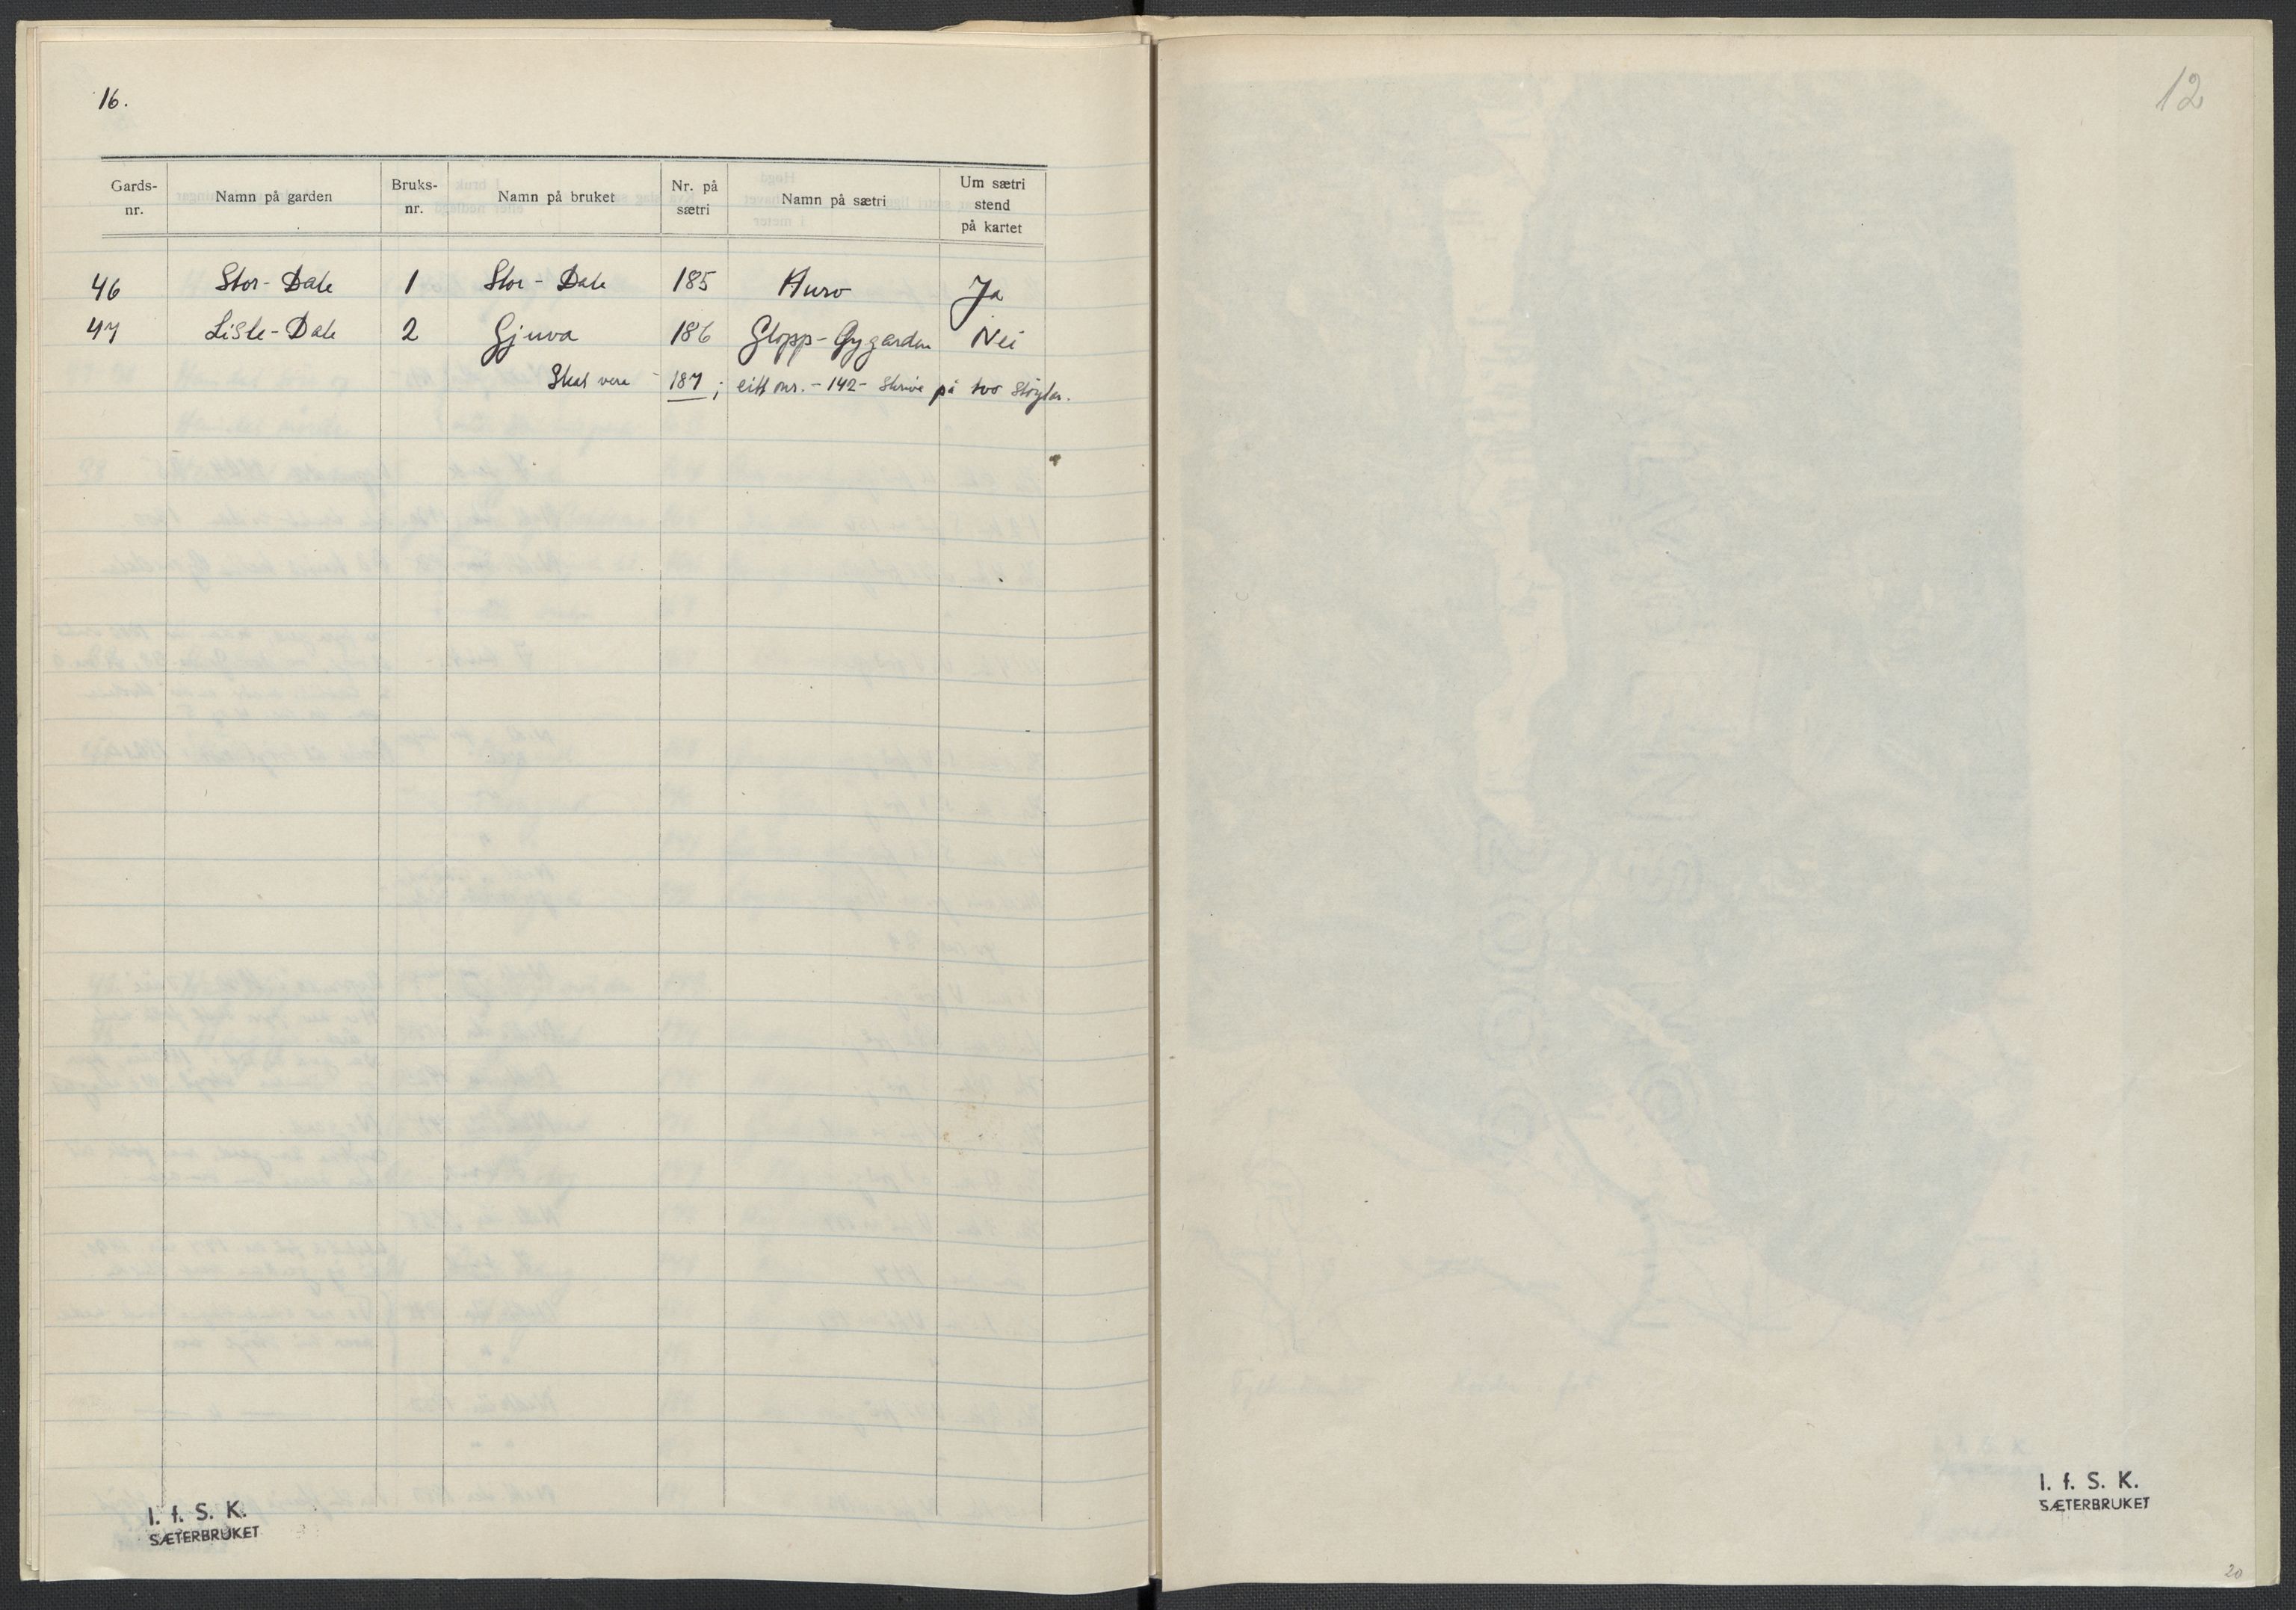 16.
Gards-nr. Namn på garden Bruks-nr. Namn på bruket Nr. på sætri Namn på sætri Um sætri stend på kartet
46 Stor-Dale 1 Stor-Dale 185 Huso Ja
47 Lisle-Dale 2 Gjuva 186 Glopp-Gygarden Nei
Skal vere 187; eitt nr. - 142 - skrive på two støylar.
I. f. S. K.
SÆTERBRUKET
12
I. f. S. K.
SÆTERBRUKET
20